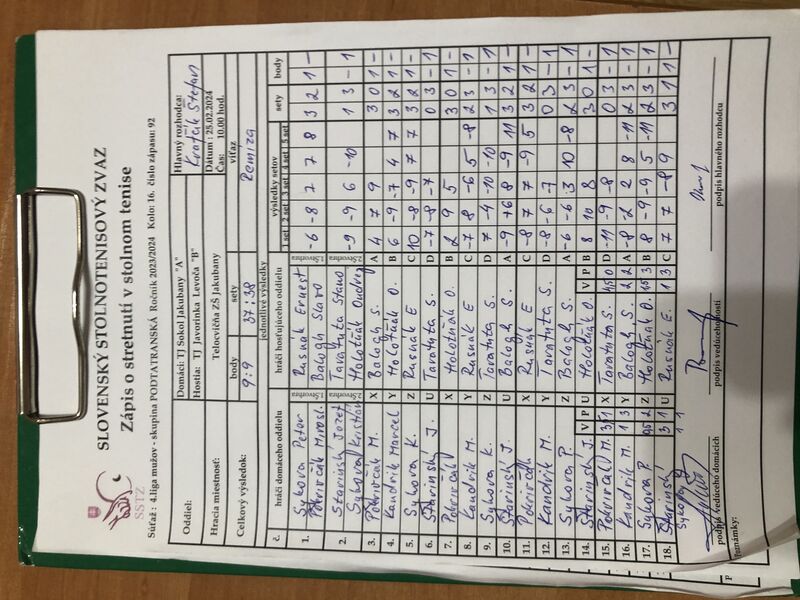 SSTZ
SLOVENSKÝ STOLNOTENISOVÝ ZVAZ
Zápis o stretnutí v stolnom tenise
Súťaž : 4.liga mužov - skupina PODTATRANSKÁ Ročník 2023/2024 Kolo: 16. číslo zápasu: 92
Oddiel: Domáci: TJ Sokol Jakubany "A" Hlavný rozhodca:
Hostia: TJ Javorinka Levoča "B" Kraftčík Štefan
Hracia miestnosť: Telocvičňa ZŠ Jakubany Dátum : 25.02.2024
Čas: 10.00 hod.
Celkový výsledok: body sety víťaz
9:9 37:38 Remíza
jednotlivé výsledky
č. hráči domáceho oddielu hráči hosťujúceho oddielu výsledky setov sety body
1 set 2 set 3 set 4 set 5 set
1. Sykora Peter Rusnák Ernest -6 -8 7 7 8 3 2 1 -
Pokrivčák Mirosl. Balogh Slavo
2. Stavinský Jozef Taratuta Stano -9 -9 6 -10 1 3 - 1
Sykora Kristián Holotňák Ondrej
3. Pokrivčák M. X A Balogh S. 4 7 9 3 0 1 -
4. Kandrik Marcel Y B Holotňák O. 6 -9 -7 4 7 3 2 1 -
5. Sykora K. Z C Rusnák E 10 -8 -9 7 7 3 2 1 -
6. Stavinský J. U D Taratuta S. -7 -8 -7 0 3 - 1
7. Pokrivčák X B Holotňák O. 2 9 5 3 0 1 -
8. Kandrik M. Y C Rusnák E -7 8 -6 5 -8 2 3 - 1
9. Sykora K. Z D Taratuta S. 7 -4 -10 -10 1 3 - 1
10. Stavinský J. U A Balogh S. -9 +6 8 -9 11 3 2 1 -
11. Pokrivčák X C Rusnák E -8 7 7 -9 5 3 2 1 -
12. Kandrik M. Y D Taratuta S. -8 -6 -7 0 3 - 1
13. Sykora P. Z A Balogh S. -6 -6 3 10 -8 2 3 - 1
14. Stavinský J. V P U B Holotňák O. V P 8 10 8 3 0 1 -
15. Pokrivčák M. X D Taratuta S. -11 -9 -8 0 3 - 1
16. Kandrik M. 1 3 Y A Balogh S. 2 2 -8 -2 2 8 -11 2 3 - 1
17. Sykora P. Z B Holotňák O. 8 -9 -9 5 -11 2 3 - 1
18. Stavinský 3 1 U C Rusnák E. 1 3 7 7 -8 9 3 1 1 -
podpis vedúceho domácich podpis vedúceho hostí podpis hlavného rozhodcu
Poznámky: